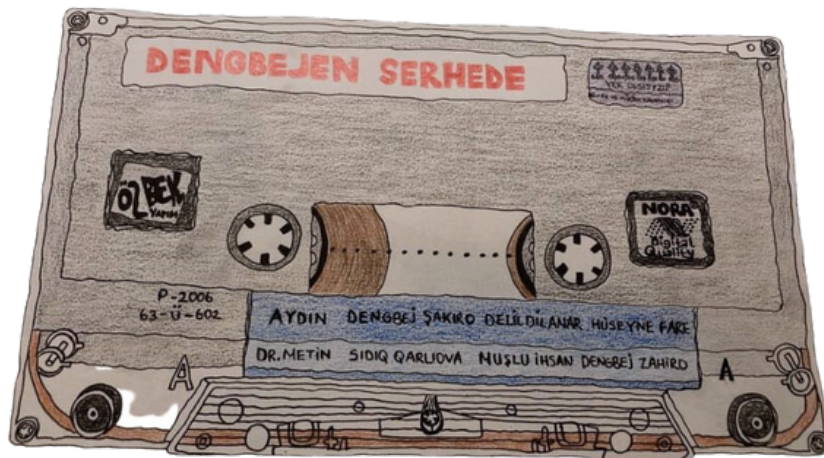 DENGBEJEN SERHEDE
ÖZBEK
YAPIM
NORA
Digital
Quality
P-2006
63-Ü-602
AYDIN DENGBEJ ŞAKIRO DELİL DİLANAR HÜSEYNE FARE
DR.METİN SIDIQ QARLIOVA MUŞLU İHSAN DENGBEJ ZAHİRO
A A